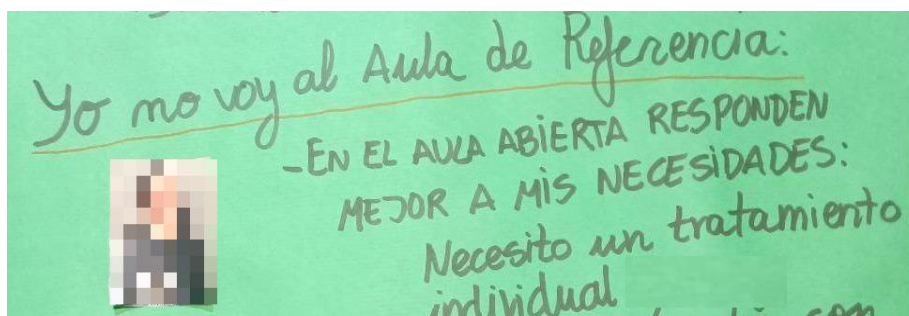 Yo no voy al Aula de Referencia:
-EN EL AULA ABIERTA RESPONDEN
MEJOR A MIS NECESIDADES:
Necesito un tratamiento
individual
con